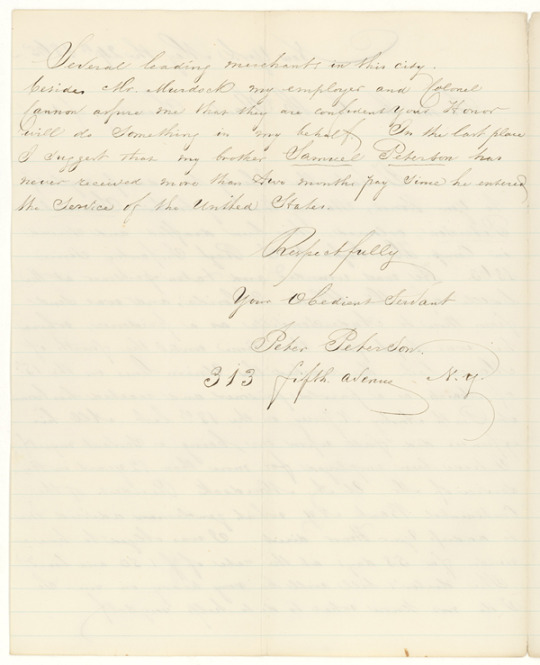 Several leading merchants in this city.
besides Mr. Murdock my employer and Colonel
Cannon assure me that they are confident your Honor
will do Something in my behalf. In the last place
I suggest that my brother Samuel Peterson has
never received more than two months pay Since he entered
the Service of the United States.
Respectfully
Your Obedient Servant
Peter Peterson.
313 fifth avenue N.Y.